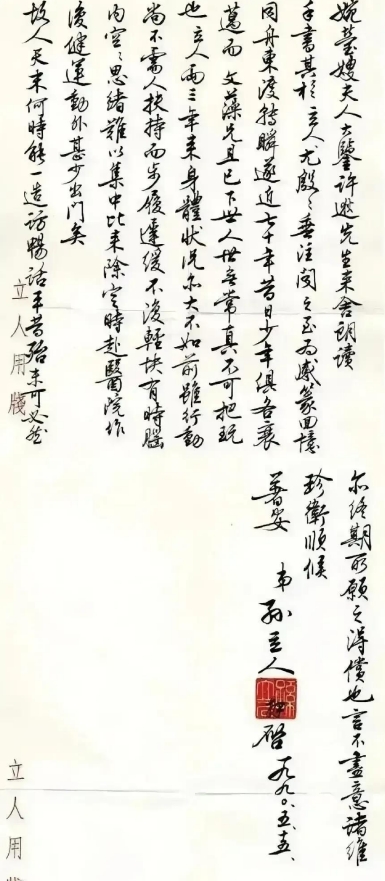 婉莹嫂夫人大鑒許遊先生来舍朗讀
手書其於立人尤殷殷垂注聞之至為感篆回憶
同舟東渡轉瞬遂近七十年昔日少年俱各衰
邁而文藻兄且已下世人世無常真不可把玩
也立人兩三年来身體狀况亦大不如前雖行動
尚不需人扶持而步履遲緩不復輕快有時腦
内空空思緒難以集中比来除定時赴醫院作
復健運動外甚少出門矣
故人天末何時能一造訪暢話平昔殆未可必然
立人用牋
亦終期所願之得償也言不盡意諸維
珍衛順候
著安
弟孫立人
啓一九九〇.五.五.
立人用